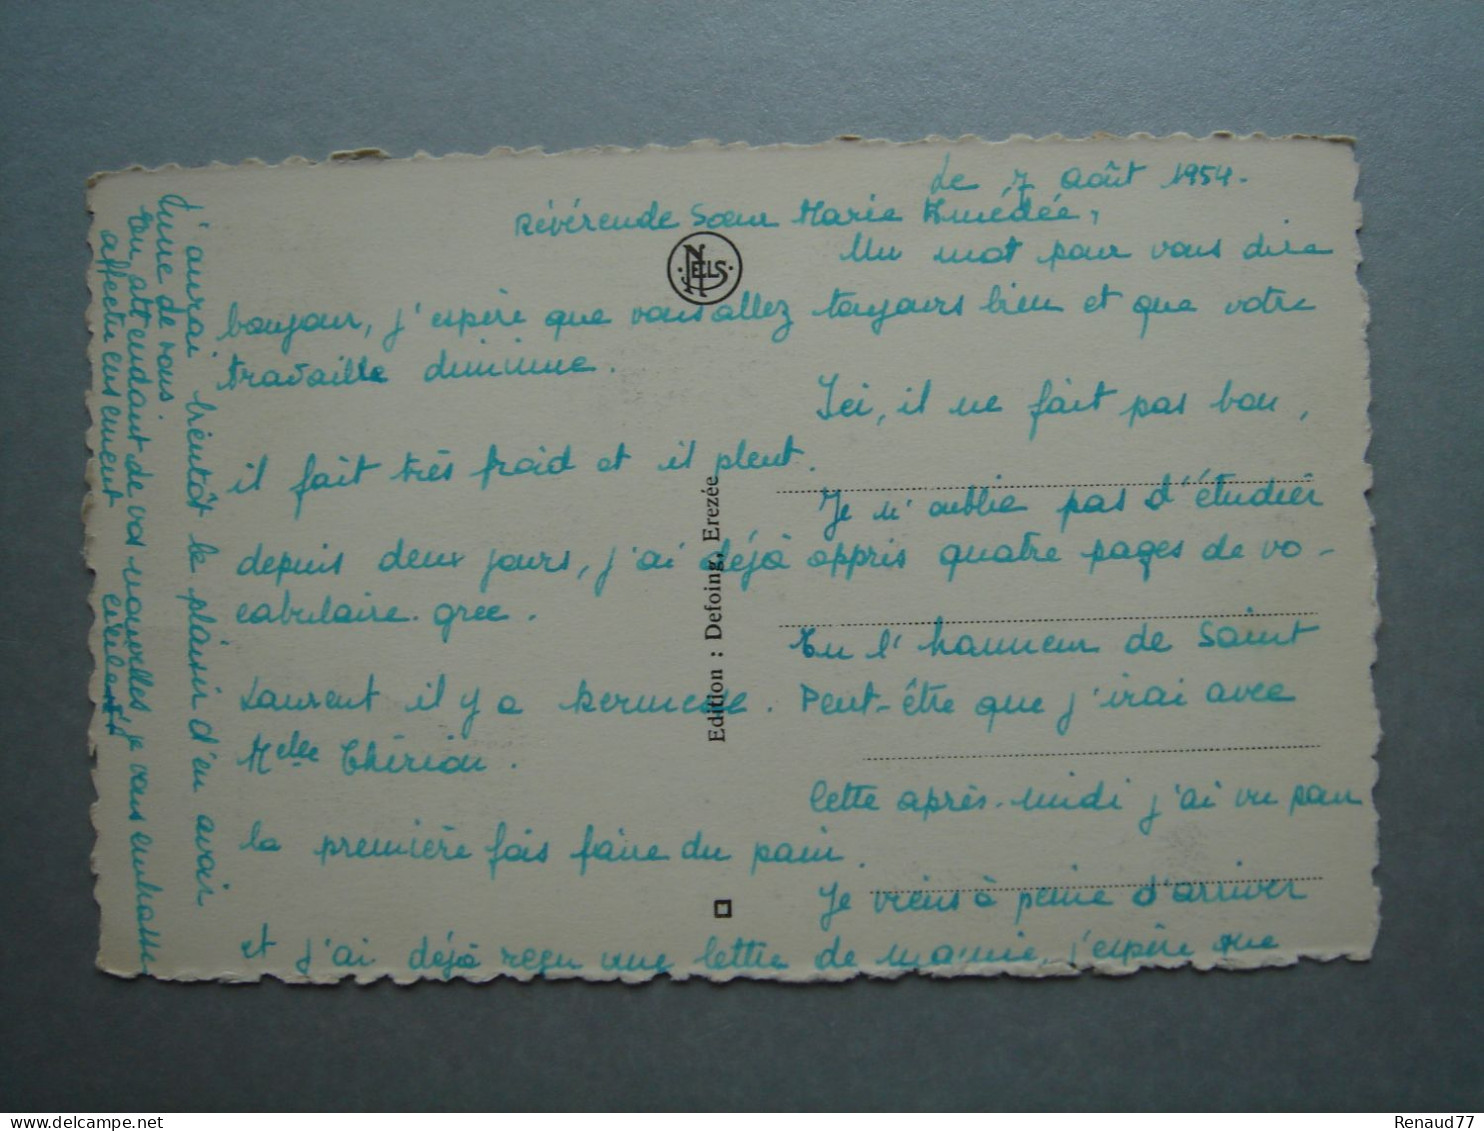 Le 7 août 1954.
Révérende Sœur Marie Amédée,
Un mot pour vous dire
bonjour, j'espère que vous allez toujours bien et que votre
travaille diminue.
Ici, il ne fait pas bon,
il fait très froid et il pleut.
Je n'oublie pas d'étudier
depuis deux jours, j'ai déjà appris quatre pages de vo-
cabulaire grec.
En l'honneur de Saint
Laurent il y a kermesse. Peut-être que j'irai avec
Melle Thérion.
Cette après-midi j'ai vu pour
la première fois faire du pain.
Je viens à peine d'arriver
et j'ai déjà reçu une lettre de mamie, j'espère que
j'aurai bientôt le plaisir d'en avoir
une de vous.
En attendant de vos nouvelles, je vous embrasse
affectueusement
NELS
Edition : Defoing, Erezée
Renaud77